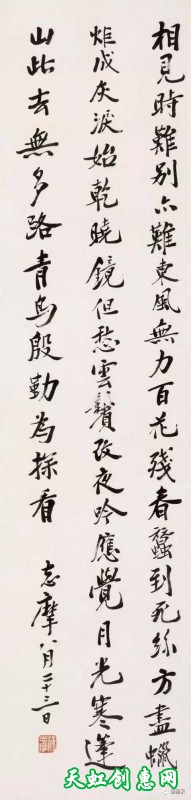 相見時難別亦難東風無力百花殘春蠶到死絲方盡蠟
炬成灰淚始乾曉鏡但愁雲鬢改夜吟應覺月光寒蓬
山此去無多路青鳥殷勤為探看
志摩八月二十三日
天虹创惠网